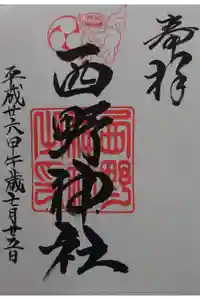 奉拝
西野神社
平成廿六甲午歳七月廿五日